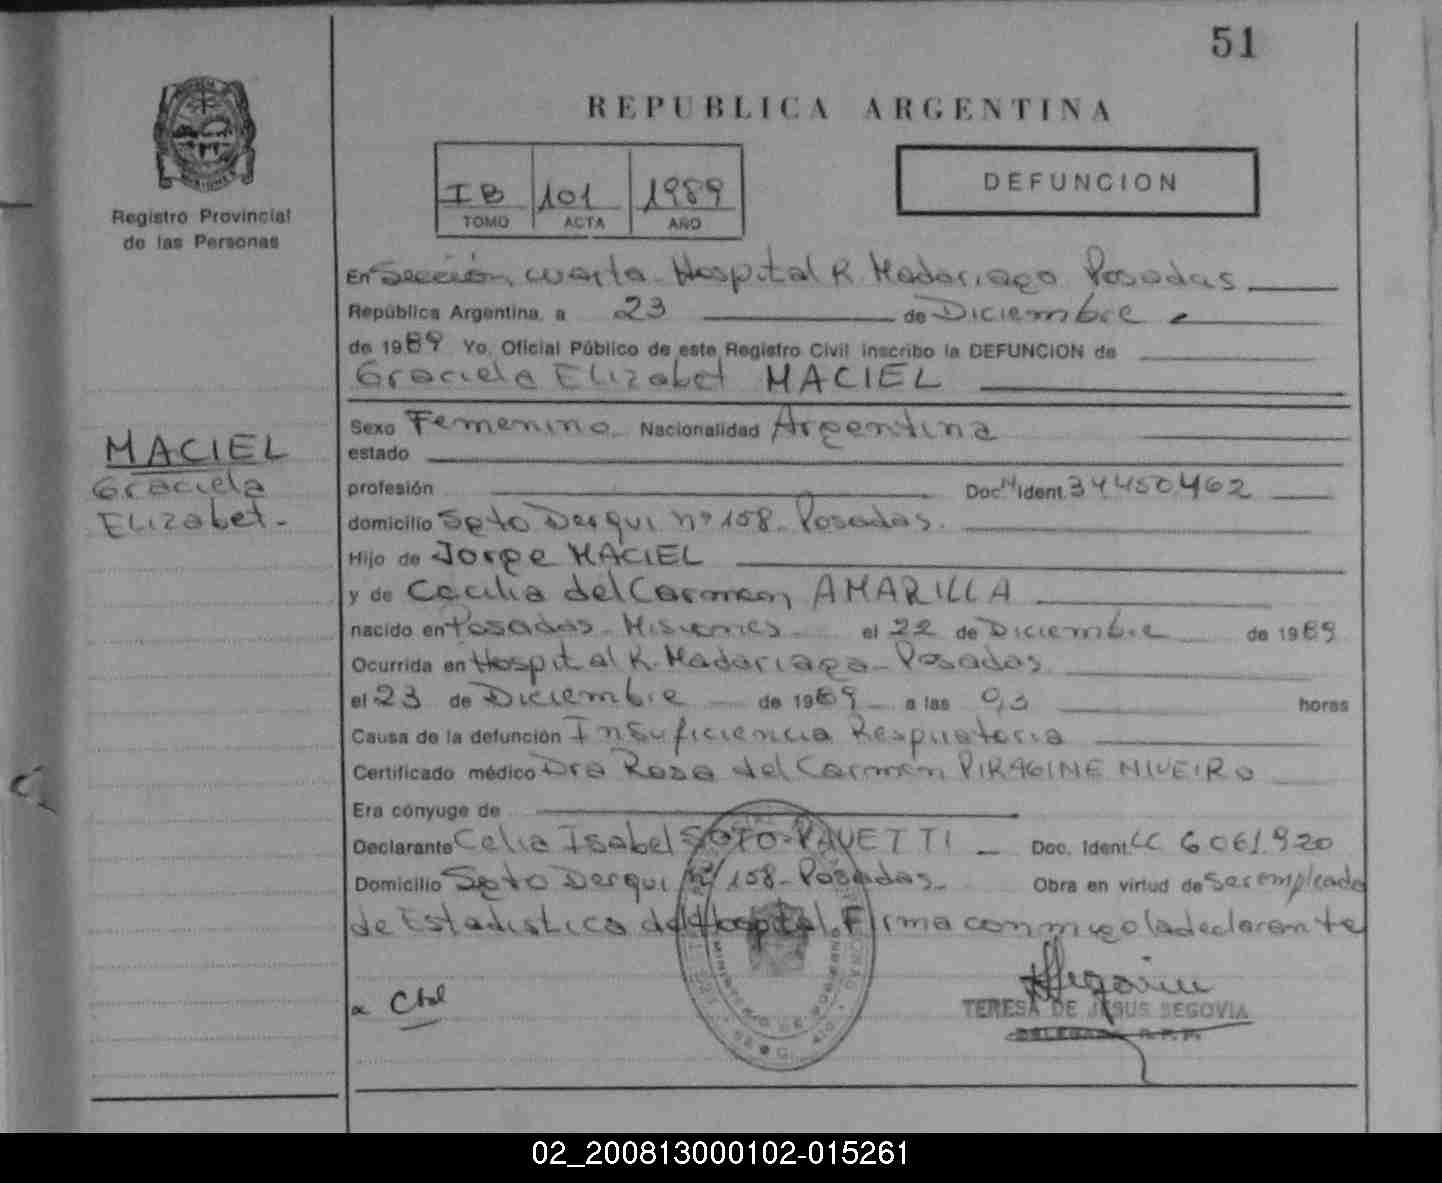 51
REPUBLICA ARGENTINA
IB 101 1989
TOMO ACTA AÑO
DEFUNCION
MISIONES
Registro Provincial
de las Personas
En Sección cuarta - Hospital R. Madariaga Posadas
República Argentina, a 23 de Diciembre
de 1989 Yo, Oficial Público de este Registro Civil inscribo la DEFUNCION de
Graciela Elizabet MACIEL
Sexo Femenino Nacionalidad Argentina
estado
MACIEL
Graciela
Elizabet -
profesión Doc. N Ident. 34450.462
domicilio Sgto Derqui nº 158 - Posadas.
Hijo de Jorge MACIEL
y de Cecilia del Carmen AMARILLA
nacido en Posadas - Misiones - el 22 de Diciembre de 1989
Ocurrida en Hospital R. Madariaga - Posadas
el 23 de Diciembre de 1989 a las 0,3 horas
Causa de la defunción Insuficiencia Respiratoria
Certificado médico Dra Rosa del Carmen PIRAGINE NIVEIRO
Era cónyuge de
Declarante Celia Isabel SOTO - PAVETTI - Doc. Ident. LC 6061.920
Domicilio Sgto Derqui Nº 158 - Posadas - Obra en virtud de ser empleada
de Estadistica del Hospital. Firma conmigo la declarante
MINISTERIO DE GOBIERNO
TERESA DE JESUS SEGOVIA
DELEGADA R.P.P.
02_200813000102-015261